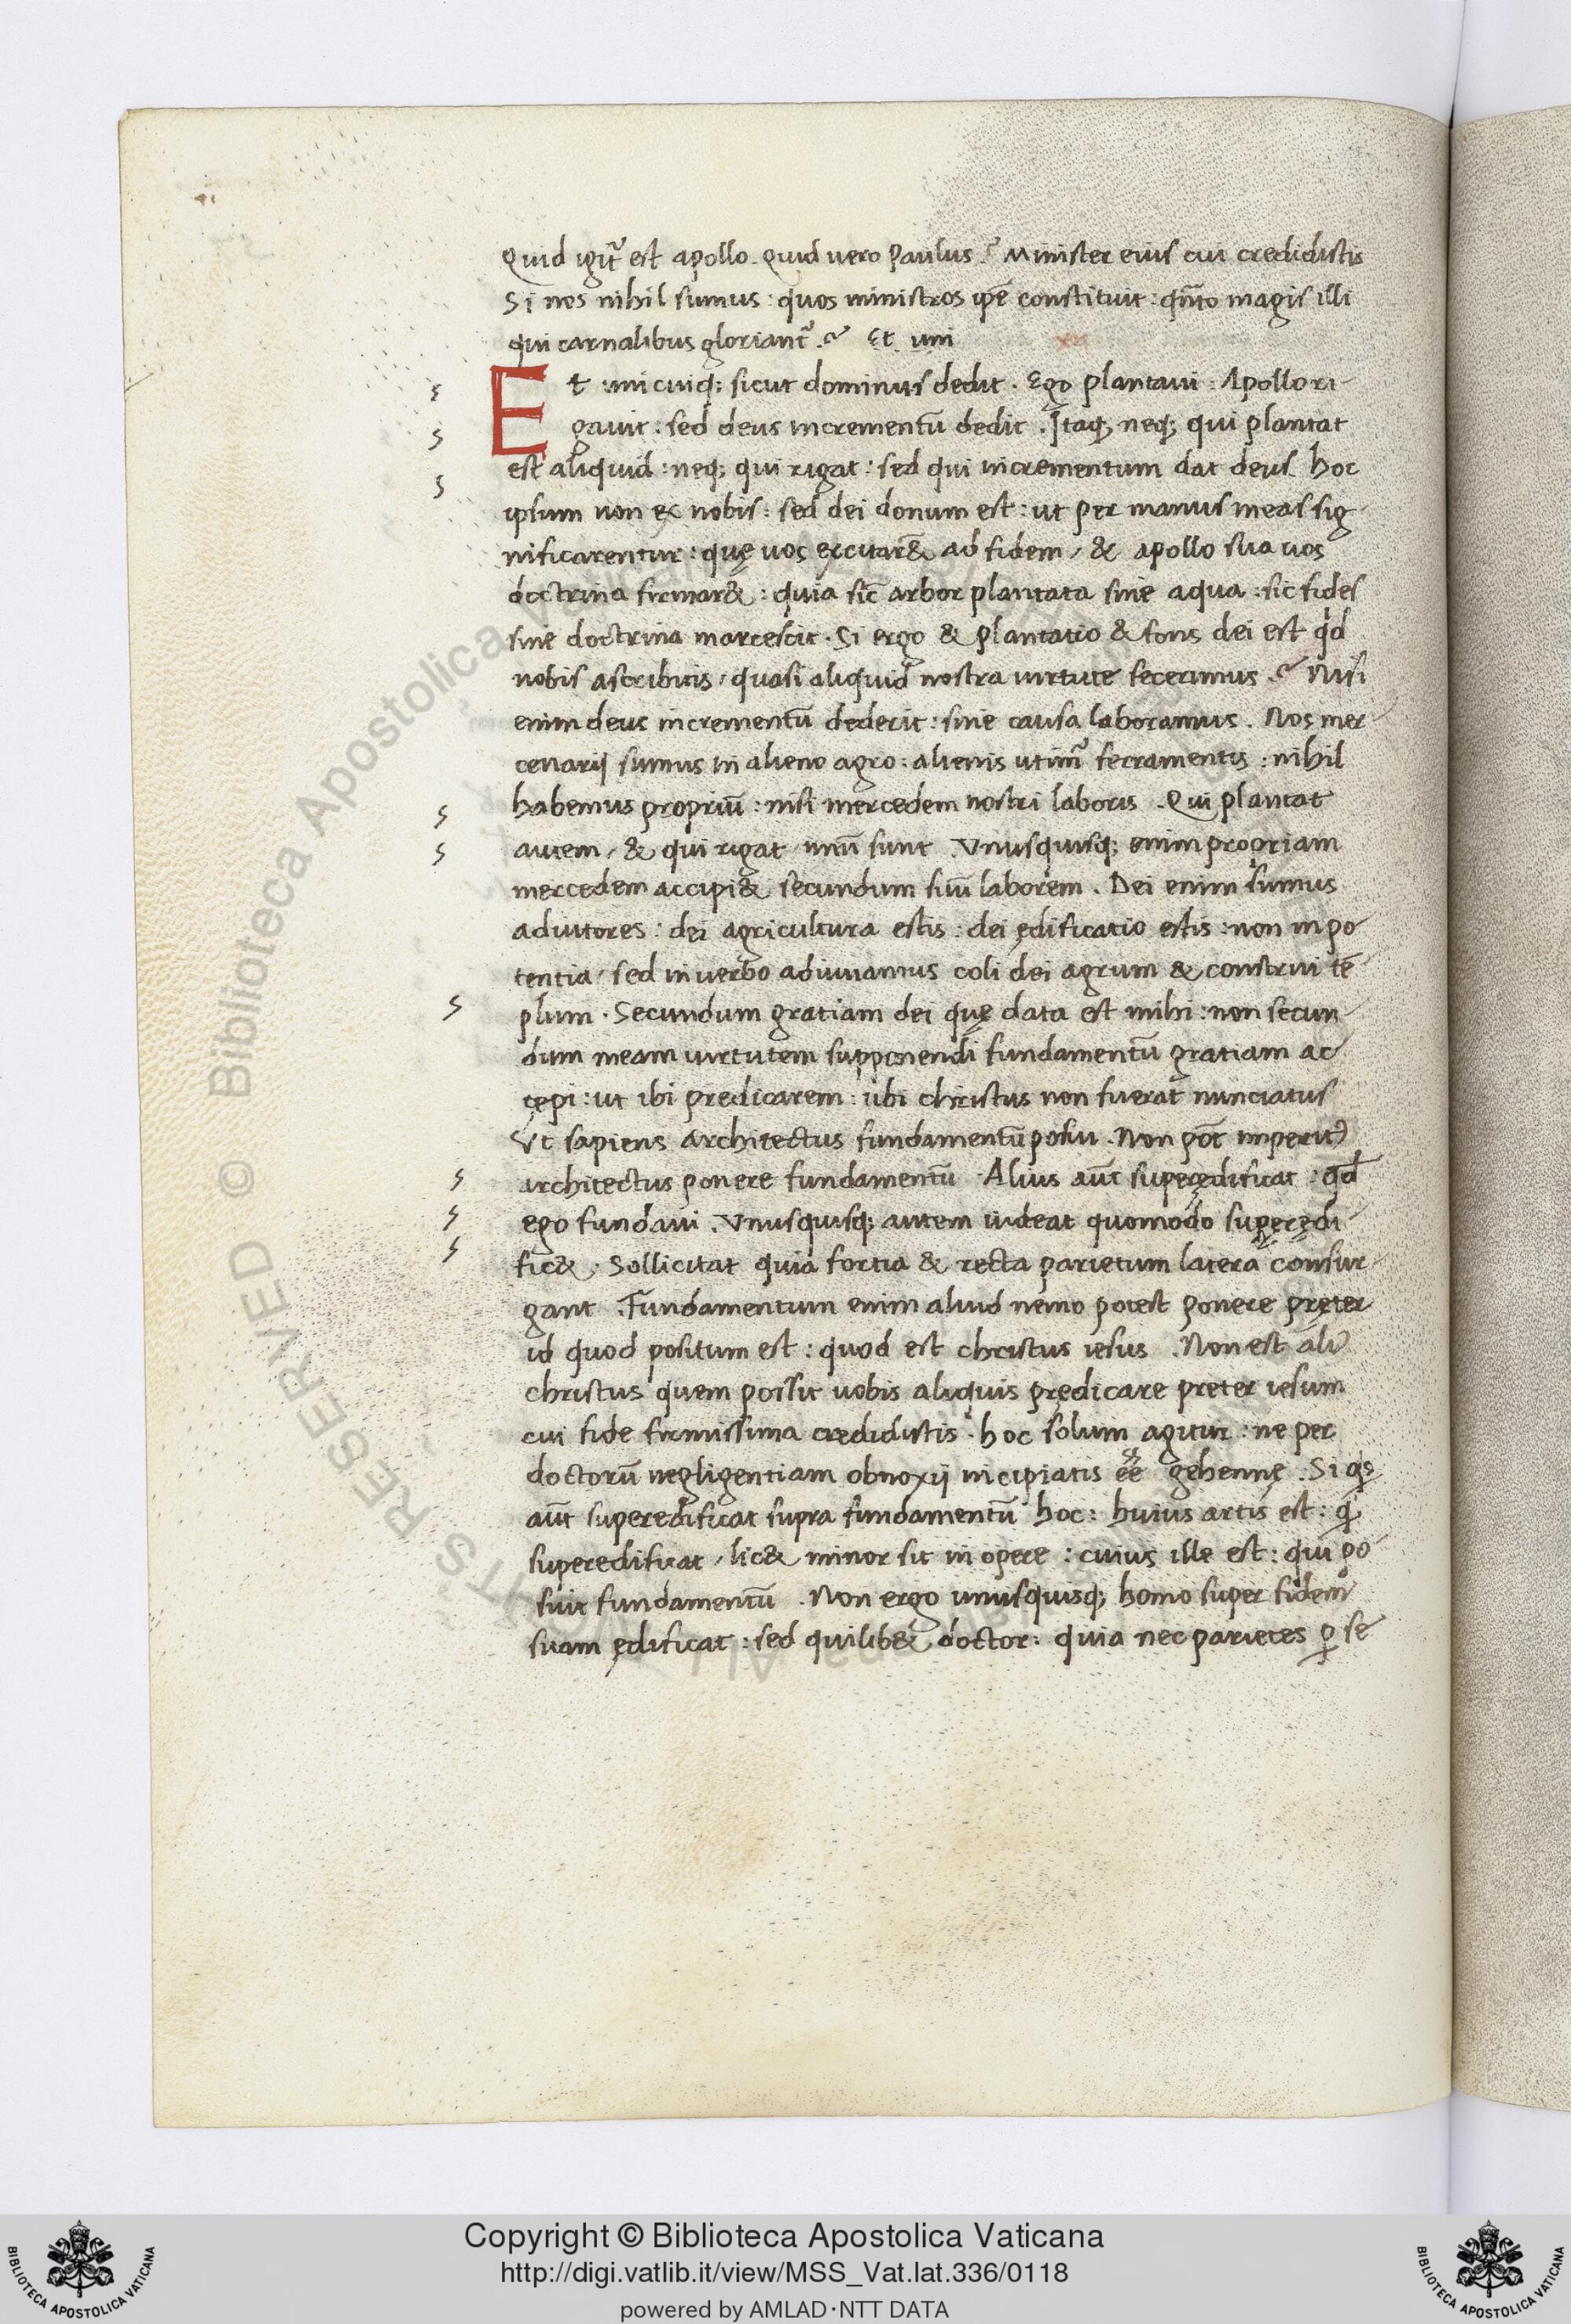 Quid igit̃ est apollo. Quid uero Paulus .? Minister eius cui credidistis
Si nos nihil sumus : quos ministros ip̃e constituit : qñto magis illi
qui carnalibus gloriant̃ .? Et uni
xii
Et unicuiq; sicut dominus dedit . Ego plantaui : Apollo ri-
gauit : sed deus incrementũ dedit . Itaq; neq; qui plantat
est aliquid : neq; qui rigat : sed qui incrementum dat deus. hoc
ipsum non ex nobis : sed dei donum est : ut per manus meas sig-
nificarentur : quę uos excitar& ad fidem / & apollo sua uos
doctrina firmar& : quia sic̃ arbor plantata sine aqua : sic fides
sine doctrina marcescit . Si ergo & plantatio & fons dei est qd̛
nobis ascribitis / quasi aliquid nostra uirtute fecerimus .? Nisi
enim deus incrementũ dederit : sine causa laboramus . Nos mer-
cenarij sumus in alieno agro : alienis utim̃ ferramentis : nihil
habemus propriũ : nisi mercedem nostri laboris . Qui plantat
autem / & qui rigat unũ sunt . Vnusquisq; enim propriam
mercedem accipi& secundum suũ laborem . Dei enim sumus
adiutores : dei agricultura estis : dei ędificatio estis : non in po-
tentia / sed in uerbo adiuuamus coli dei agrum & construi tẽ-
plum . Secundum gratiam dei quę data est mihi : non secun-
dum meam uirtutem supponendi fundamentũ gratiam ac-
cepi : ut ibi predicarem : ubi christus non fuerat nunciatus
Vt sapiens architectus fundamentũ posui . Non põt imperitꝰ
architectus ponere fundamentũ . Alius aũt superędificat : qđ
ego fundaui . Vnusquisq; autem uideat quomodo superędi-
fic& . Sollicitat quia fortia & recta parietum latera consur-
gant . Fundamentum enim aliud nemo potest ponere pręter
id quod positum est : quod est christus iesus . Non est aliꝰ
christus quem possit uobis aliquis prędicare preter iesum
cui fide firmissima credidistis . hoc solum agitur : ne per
doctorũ negligentiam obnoxij incipiatis eẽ gehennę . Si qs
aũt superedificat supra fundamentũ hoc : huius artis est : q̛
superedificat / lic& minor sit in opere : cuius ille est : qui po-
suit fundamentũ . Non ergo unusquisq; homo super fidem
suam ędificat : sed quilib& doctor : quia nec parietes ꝑ se
Copyright © Biblioteca Apostolica Vaticana
http://digi.vatlib.it/view/MSS_Vat.lat.336/0118
powered by AMLAD·NTT DATA